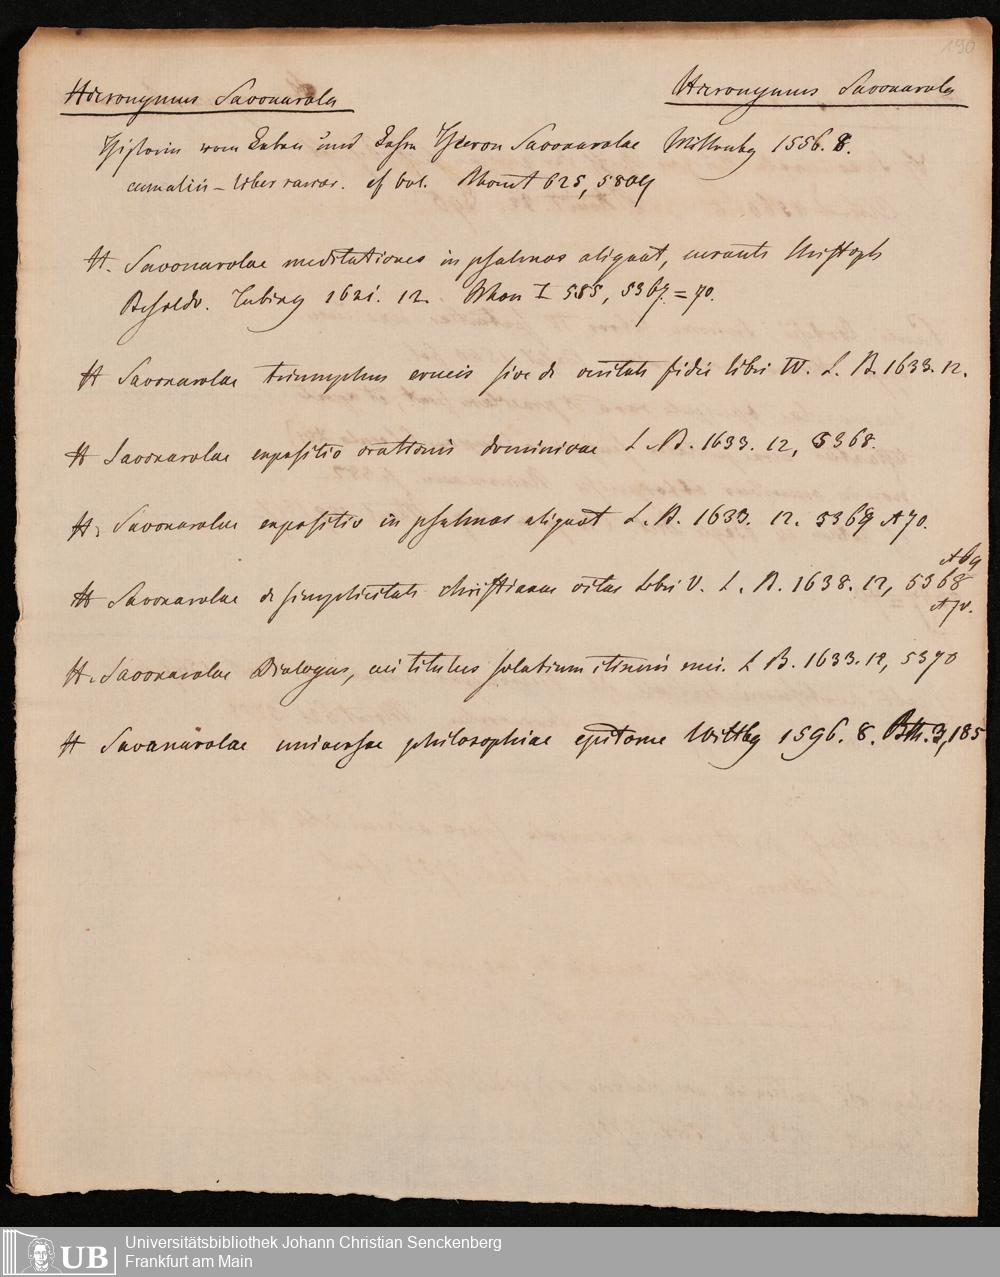 190
Hieronymus Savonarola Hieronymus Savonarola
Historie vom Leben und Lehre Hieron Savonarolae Wittenbg 1556. 8.
liber rarior. cf 625, 5804
H. Savonarolae meditationes in psalmos aliquot, curante Christoph
Besoldo. Tubing 1621. 12. I 585, 5367 = 70.
H Savonarolae triumphus crucis sive de veritate fidei libri IV. L. B. 1633. 12.
H Savonarolae expositio orationis dominicae L. B. 1633. 12, 5368.
H. Savonarolae expositio in psalmos aliquot L. B. 1633. 12. 5369 + 70.
+ 69
H Savonarolae de simplicitate christianae vitae libri V. L. B. 1638. 12, 5368
+ 70.
H. Savonarolae Dialogus, cui titulus solatium itineris mei. L B. 1633. 12, 5370
H Savonarolae universae philosophiae epitome Wittbg 1596. 8. 3, 185
UB Universitätsbibliothek Johann Christian Senckenberg
Frankfurt am Main